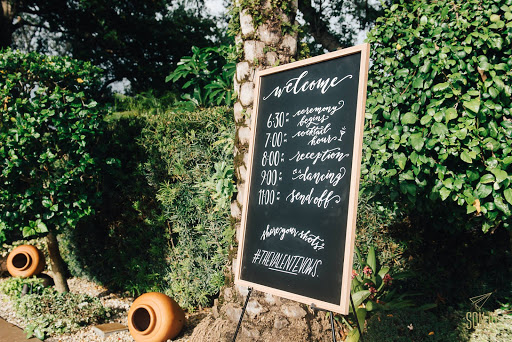 welcome
6:30: ceremony
begins
7:00: cocktail
hour &
8:00: reception
9:00: dancing
11:00: send off
share your shots
#THEVALENTEVOWS